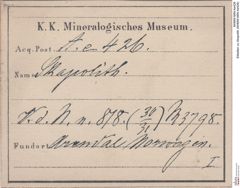 K. K. Mineralogisches Museum.
Acq. Post. A. e 426.
Name Skapolith.
V. d. N. n. 878. (30/31) M 3798.
Fundort Arendal Norwegen.
I